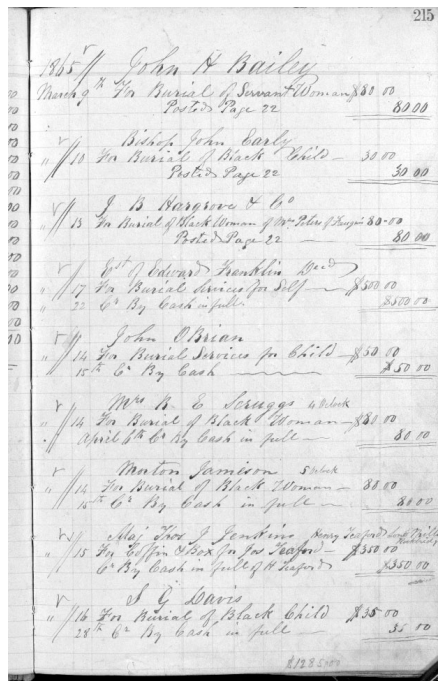 215
1865 John H Bailey
March 9th For Burial of Servant Woman $80 00
Posted Page 22 80 00
Bishop John Early
" 10 For Burial of Black Child — 30 00
Posted Page 22 30 00
J B Hargrove & Co
" 13 For Burial of Black Woman of Wm Peters of 80-00
Posted Page 22 — 80 00
Est of Edward Franklin Decd
" 17 For Burial Services for Self — $500 00
" 22 Cr By Cash in full $500 00
John OBrian
" 14 For Burial Services for Child — $50 00
15th Cr By Cash — $50 00
Mrs R. E Scruggs 4 Oclock
" 14 For Burial of Black Woman — $80 00
" April 6th Cr By Cash in full — 80 00
Morton Jamison 5 Oclock
" 14 For Burial of Black Woman — 80 00
15th Cr By Cash in full — 80 00
Maj Thos J Jenkins Henry Teaford
" 15 For Coffin & Box for Jos Teaford — $350 00
Cr By Cash in full of H Teaford $350 00
S G Davis
" 16 For Burial of Black Child $35 00
28th Cr By Cash in full — 35 00
$1285.00